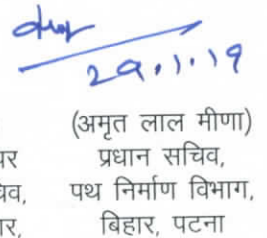 29.1.19
(अमृत लाल मीणा)
प्रधान सचिव,
पथ निर्माण विभाग,
बिहार, पटना